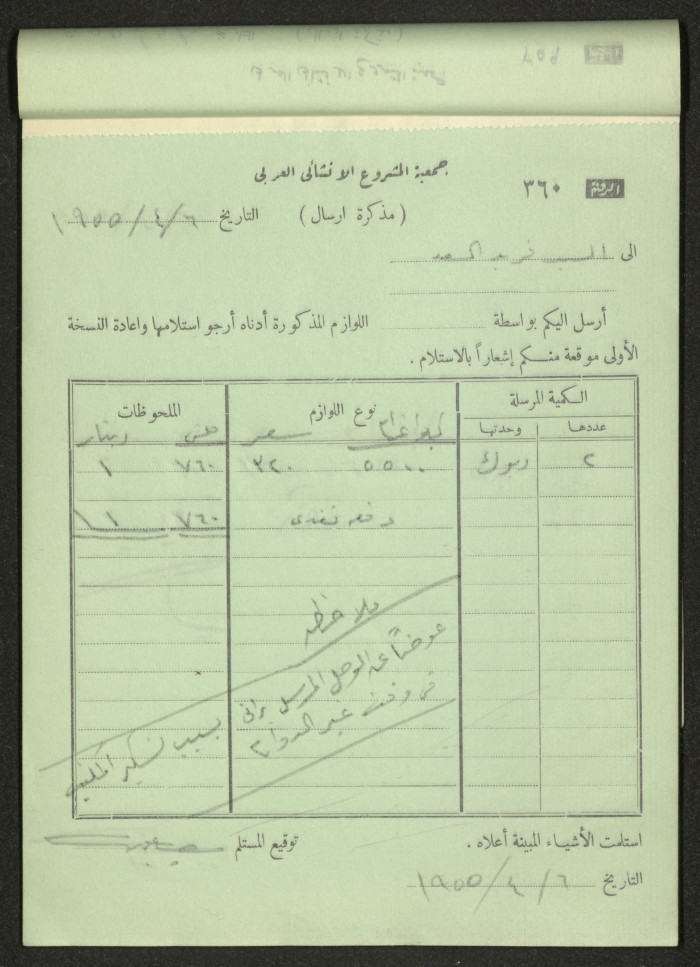 جمعية المشروع الانشائي العربي
الرقم ٣٦٠
( مذكرة ارسال ) التاريخ ١٩٥٥/٤/٦
الى السيد فريد السعد
أرسل اليكم بواسطة اللوازم المذكورة أدناه أرجو استلامها واعادة النسخة
الأولى موقعة منكم إشعاراً بالاستلام .
الكمية المرسلة نوع اللوازم الملحوظات
عددها وحدتها كيلو غرام سعر فلس دينار
٢ ديوك ٥٥٠٠ ٣٢٠ ٧٦٠ ١
دفعه نقدي ٧٦٠ ١
ملاحظه
عوضاً عن الوصل المرسل
في وقت غير الدوام
بسبب تسكير المكتب
استلمت الأشياء المبينة أعلاه . توقيع المستلم
التاريخ ١٩٥٥/٤/٦